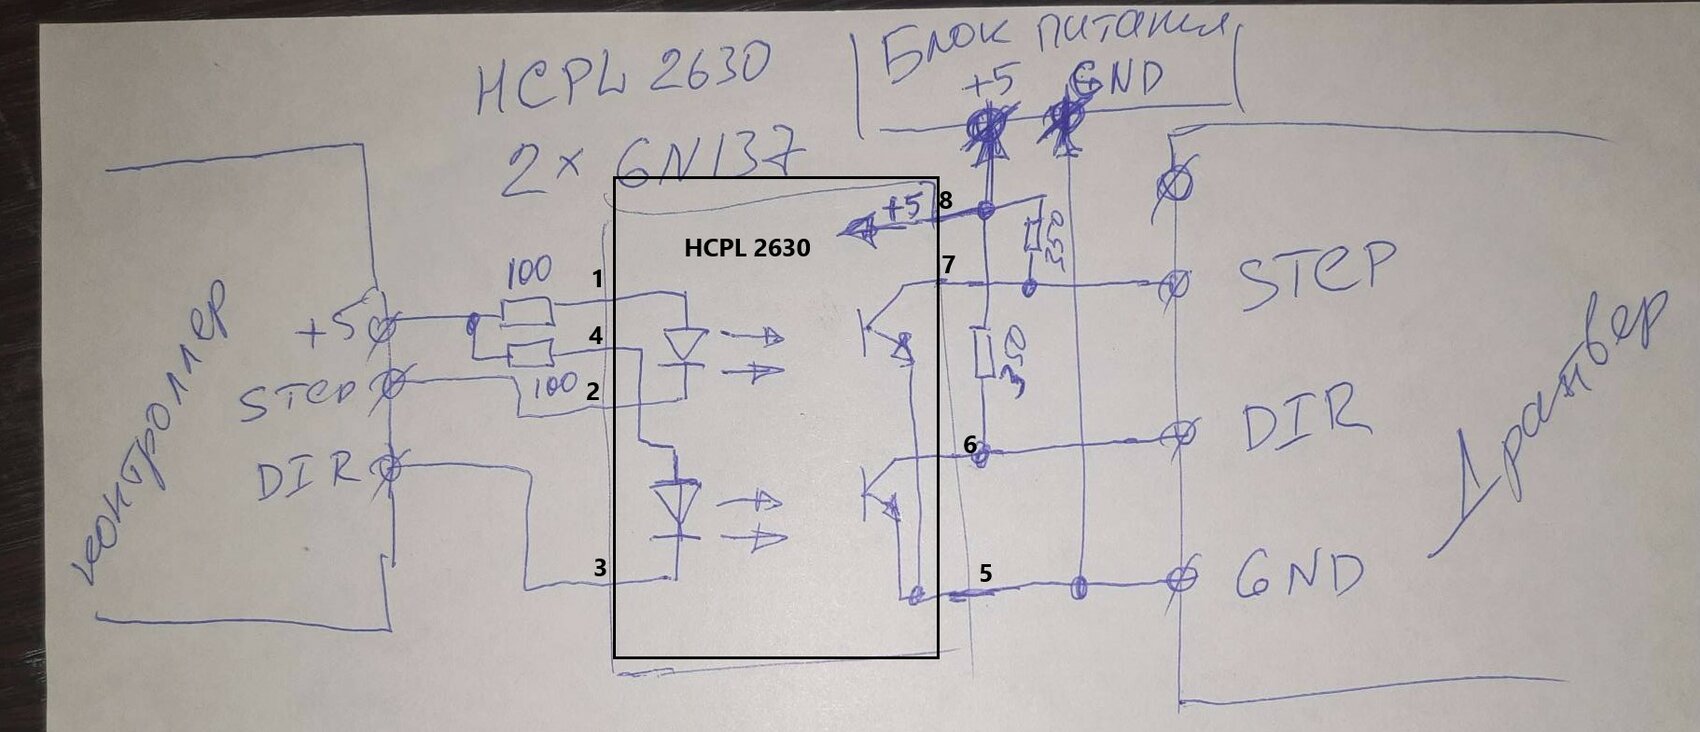 HCPL 2630
2 x 6N137
Блок питания
+5 GND
+5
8
HCPL 2630
7
350
100
1
4
100
2
3
350
6
5
контроллер
+5
STEP
DIR
STEP
DIR
GND
Драйвер